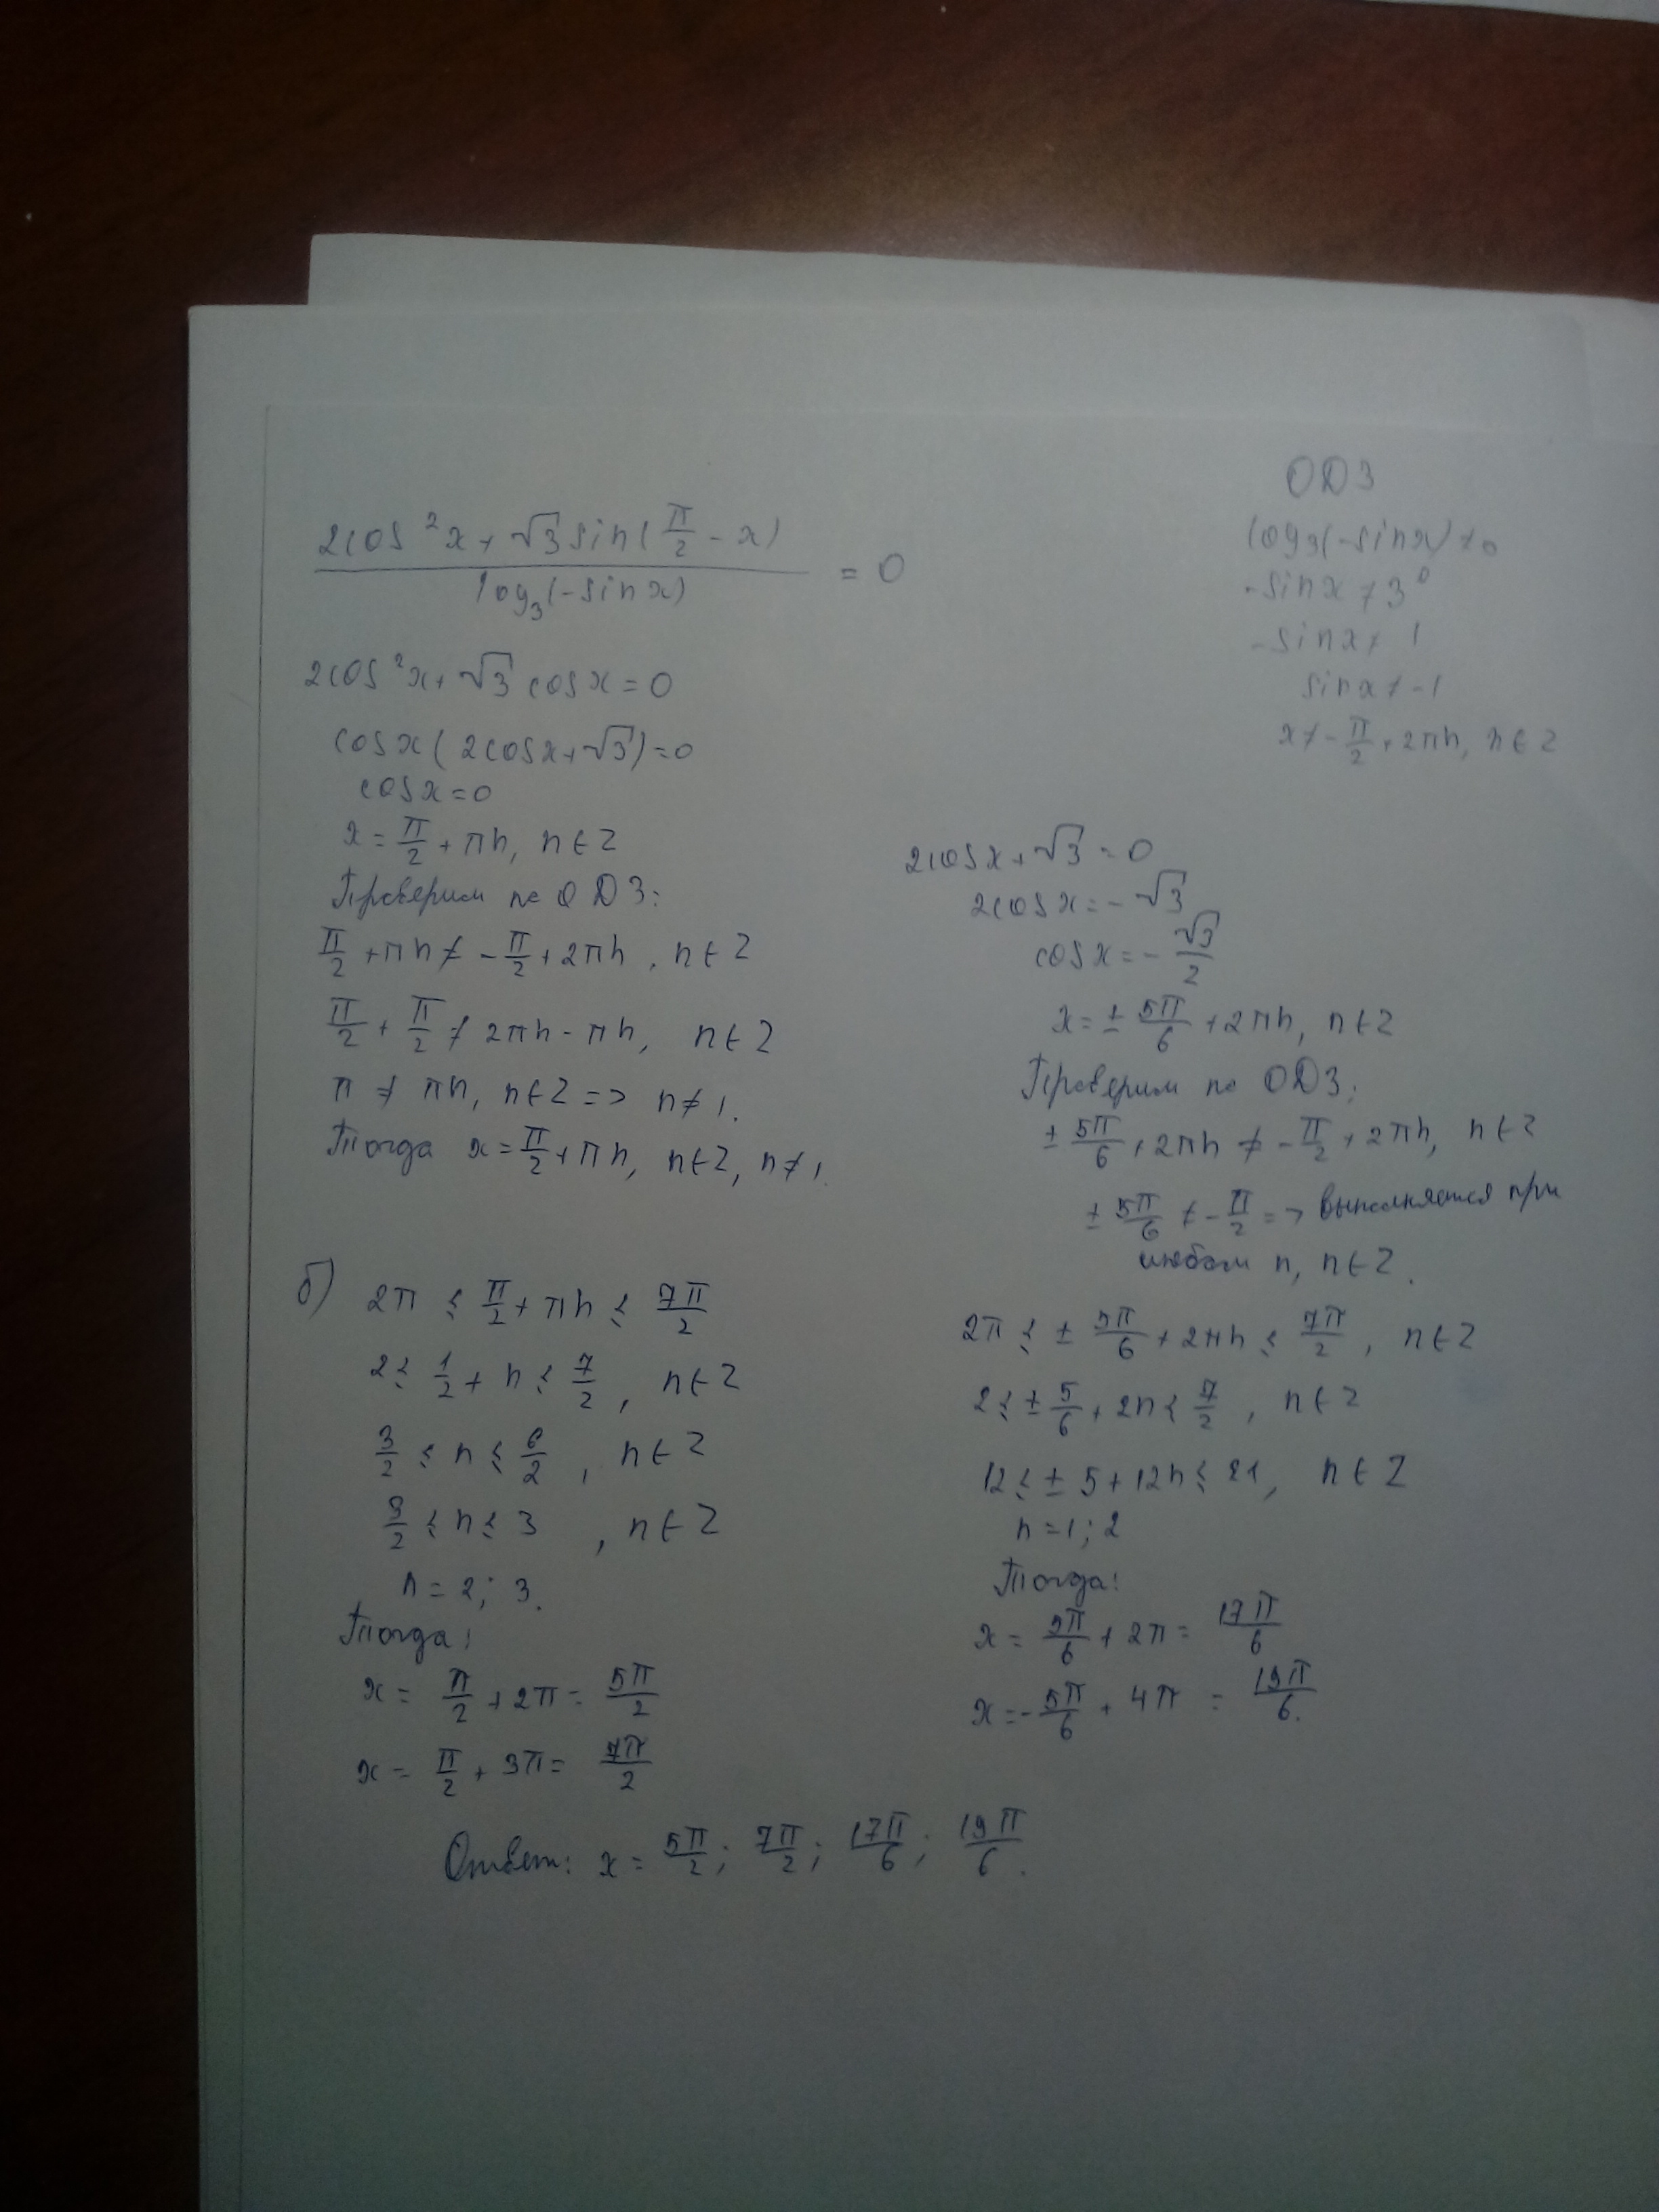 ОДЗ
2cos²x + √3 sin(π/2 - x)
log₃(-sinx) ≠ 0
= 0
log₃(-sinx)
-sinx ≠ 3⁰
-sinx ≠ 1
2cos²x + √3 cosx = 0
sinx ≠ -1
cosx(2cosx + √3) = 0
x ≠ -π/2 + 2πn, n ∈ Z
cosx = 0
x = π/2 + πn, n ∈ Z
Проверим по ОДЗ:
π/2 + πn ≠ -π/2 + 2πn, n ∈ Z
π/2 + π/2 ≠ 2πn - πn, n ∈ Z
π ≠ πn, n ∈ Z => n ≠ 1.
Тогда x = π/2 + πn, n ∈ Z, n ≠ 1.
2cosx + √3 = 0
2cosx = -√3
cosx = -√3/2
x = ± 5π/6 + 2πn, n ∈ Z
Проверим по ОДЗ:
± 5π/6 + 2πn ≠ -π/2 + 2πn, n ∈ Z
± 5π/6 ≠ -π/2 => выполняется при
любом n, n ∈ Z.
б) 2π ≤ π/2 + πn ≤ 7π/2
2 ≤ 1/2 + n ≤ 7/2, n ∈ Z
3/2 ≤ n ≤ 6/2, n ∈ Z
3/2 ≤ n ≤ 3, n ∈ Z
n = 2; 3.
Тогда:
x = π/2 + 2π = 5π/2
x = π/2 + 3π = 7π/2
2π ≤ ± 5π/6 + 2πn ≤ 7π/2, n ∈ Z
2 ≤ ± 5/6 + 2n ≤ 7/2, n ∈ Z
12 ≤ ± 5 + 12n ≤ 21, n ∈ Z
n = 1; 2
Тогда:
x = 5π/6 + 2π = 17π/6
x = -5π/6 + 4π = 19π/6.
Ответ: x = 5π/2; 7π/2; 17π/6; 19π/6.